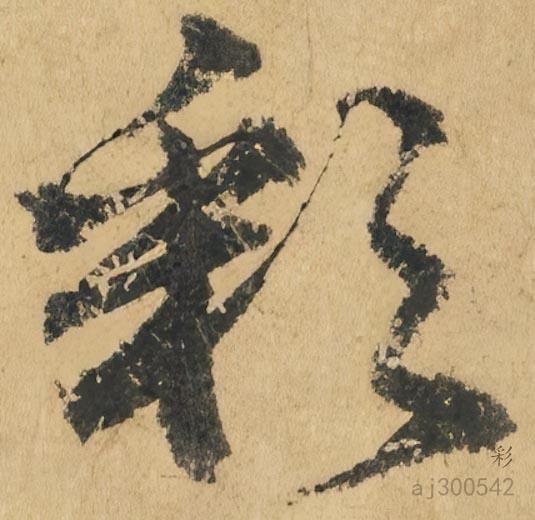 彩
彩
aj300542